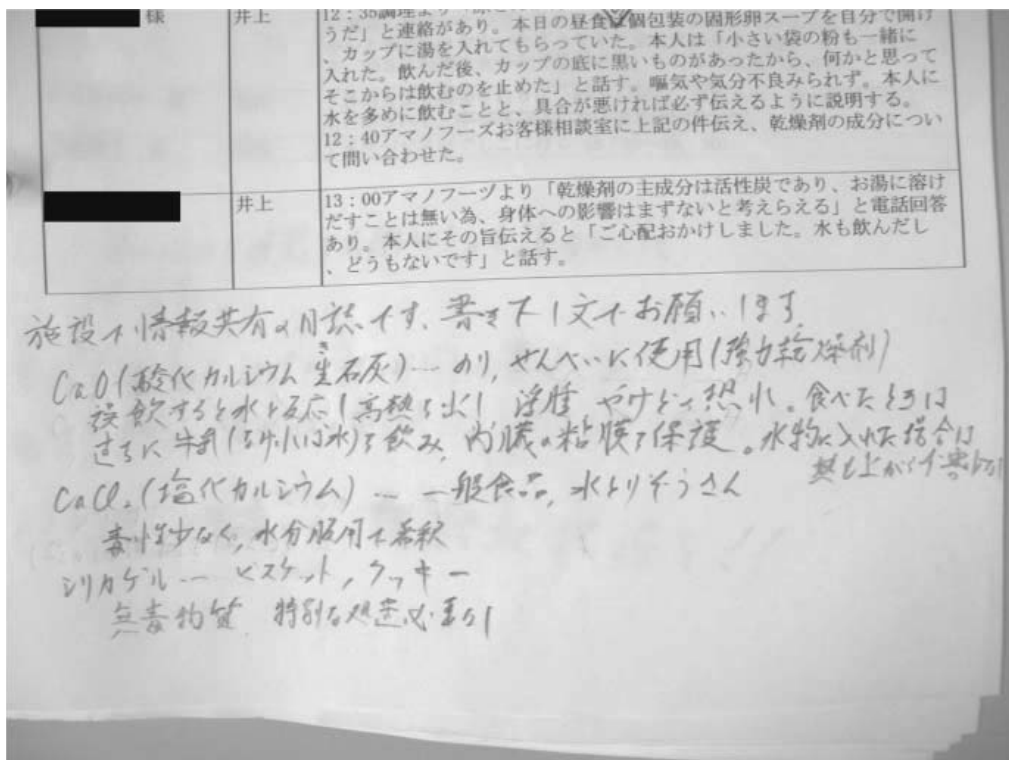 様 井上 12：35調理より
うだ」と連絡があり。本日の昼食は個包装の固形卵スープを自分で開け
、カップに湯を入れてもらっていた。本人は「小さい袋の粉も一緒に
入れた。飲んだ後、カップの底に黒いものがあったから、何かと思って
そこからは飲むのを止めた」と話す。嘔気や気分不良みられず。本人に
水を多めに飲むことと、具合が悪ければ必ず伝えるように説明する。
12：40アマノフーズお客様相談室に上記の件伝え、乾燥剤の成分につい
て問い合わせた。
井上 13：00アマノフーヅより「乾燥剤の主成分は活性炭であり、お湯に溶け
だすことは無い為、身体への影響はまずないと考えらえる」と電話回答
あり。本人にその旨伝えると「ご心配おかけしました。水も飲んだし
、どうもないです」と話す。
施設で情報共有の日誌です、書き下し文でお願いします
CaO(酸化カルシウム 生石灰)… のり, せんべいに使用(強力乾燥剤)
き
誤飲すると水と反応し高熱を出し 浮腫 やけどの恐れ。食べたときは
直ちに牛乳(なければ水)を飲み, 内臓の粘膜を保護。水物に入れた場合は
CaCl₂(塩化カルシウム) … 一般食品, 水とりぞうさん
毒性少なく, 水分服用で希釈
シリカゲル … ビスケット, クッキー
無毒物質 特別な処置必要なし